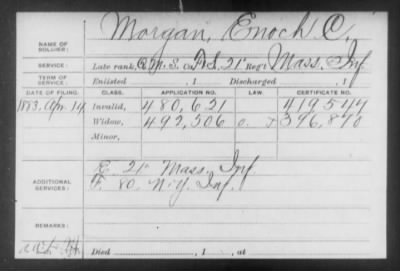 Morgan, Enoch C.
NAME OF SOLDIER:
SERVICE: Late rank, Q.M.S. Co. F.S. 21" Reg't Mass. Inf.
TERM OF SERVICE: Enlisted , 1 Discharged , 1
DATE OF FILING. CLASS. APPLICATION NO. LAW. CERTIFICATE NO.
1883, Apr. 14 Invalid, 480,621 419,544
Widow, 492,506 396,870
Minor,
E. 21" Mass. Inf.
ADDITIONAL SERVICES: F. 80. N.Y. Inf.
REMARKS:
Died , 1 , at